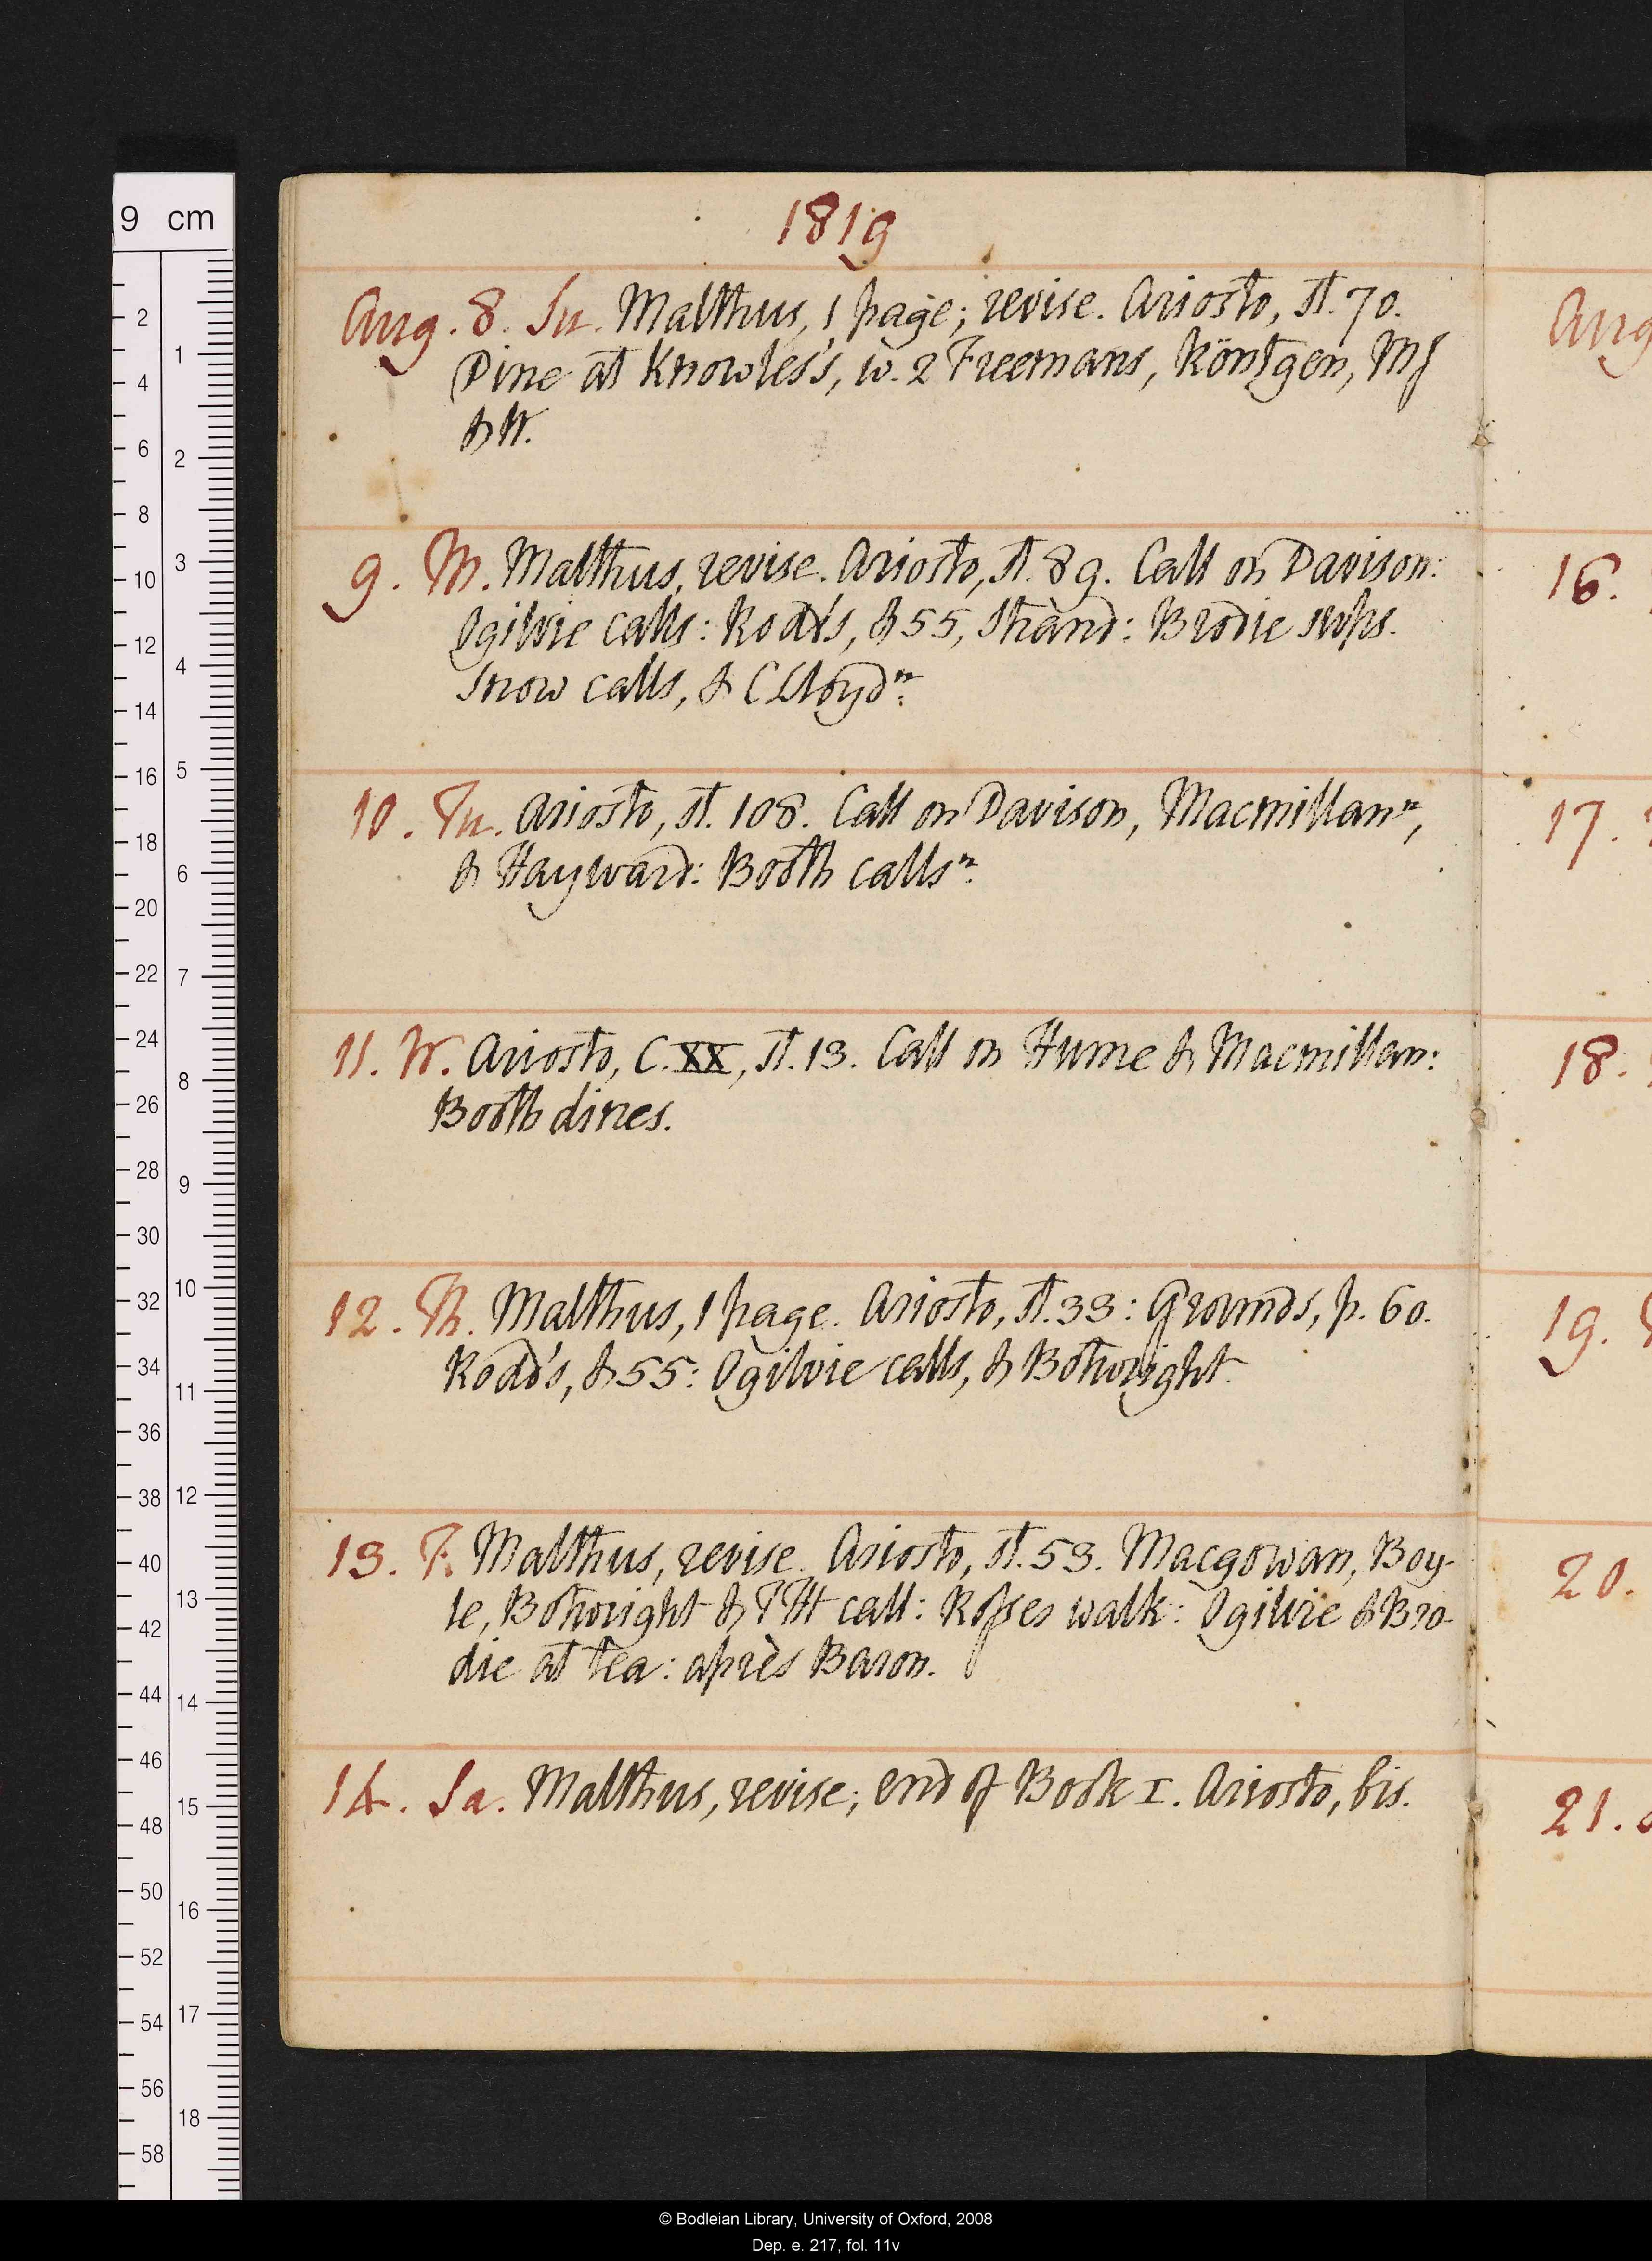 9 cm
1819
Aug. 8. Su. Malthus, 1 page; revise. Ariosto, st. 70.
Dine at Knowles's, w. 2 Freemans, Röntgen, MJ
& W.
9. M. Malthus, revise. Ariosto, st. 89. Call on Davison:
Ogilvie calls: Rodd's, & 55, Strand: Brodie sups.
Snow calls, & C Lloyd n.
10. Tu. Ariosto, st. 108. Call on Davison, Macmillan n,
& Hayward: Booth calls n.
11. W. Ariosto, C. XX, st. 13. Call on Hume & Macmillan:
Booth dines.
12. Th. Malthus, 1 page. Ariosto, st. 33: Grounds, p. 60.
Rodd's, & 55: Ogilvie calls, & Botwright.
13. F. Malthus, revise. Ariosto, st. 53. Macgowan, Boy-
le, Botwright & TH call: Rosses walk: Ogilvie & Bro-
die at tea: après Baron.
14. Sa. Malthus, revise; end of Book I. Ariosto, bis.
Aug
16.
17.
18.
19.
20.
21.
© Bodleian Library, University of Oxford, 2008
Dep. e. 217, fol. 11v